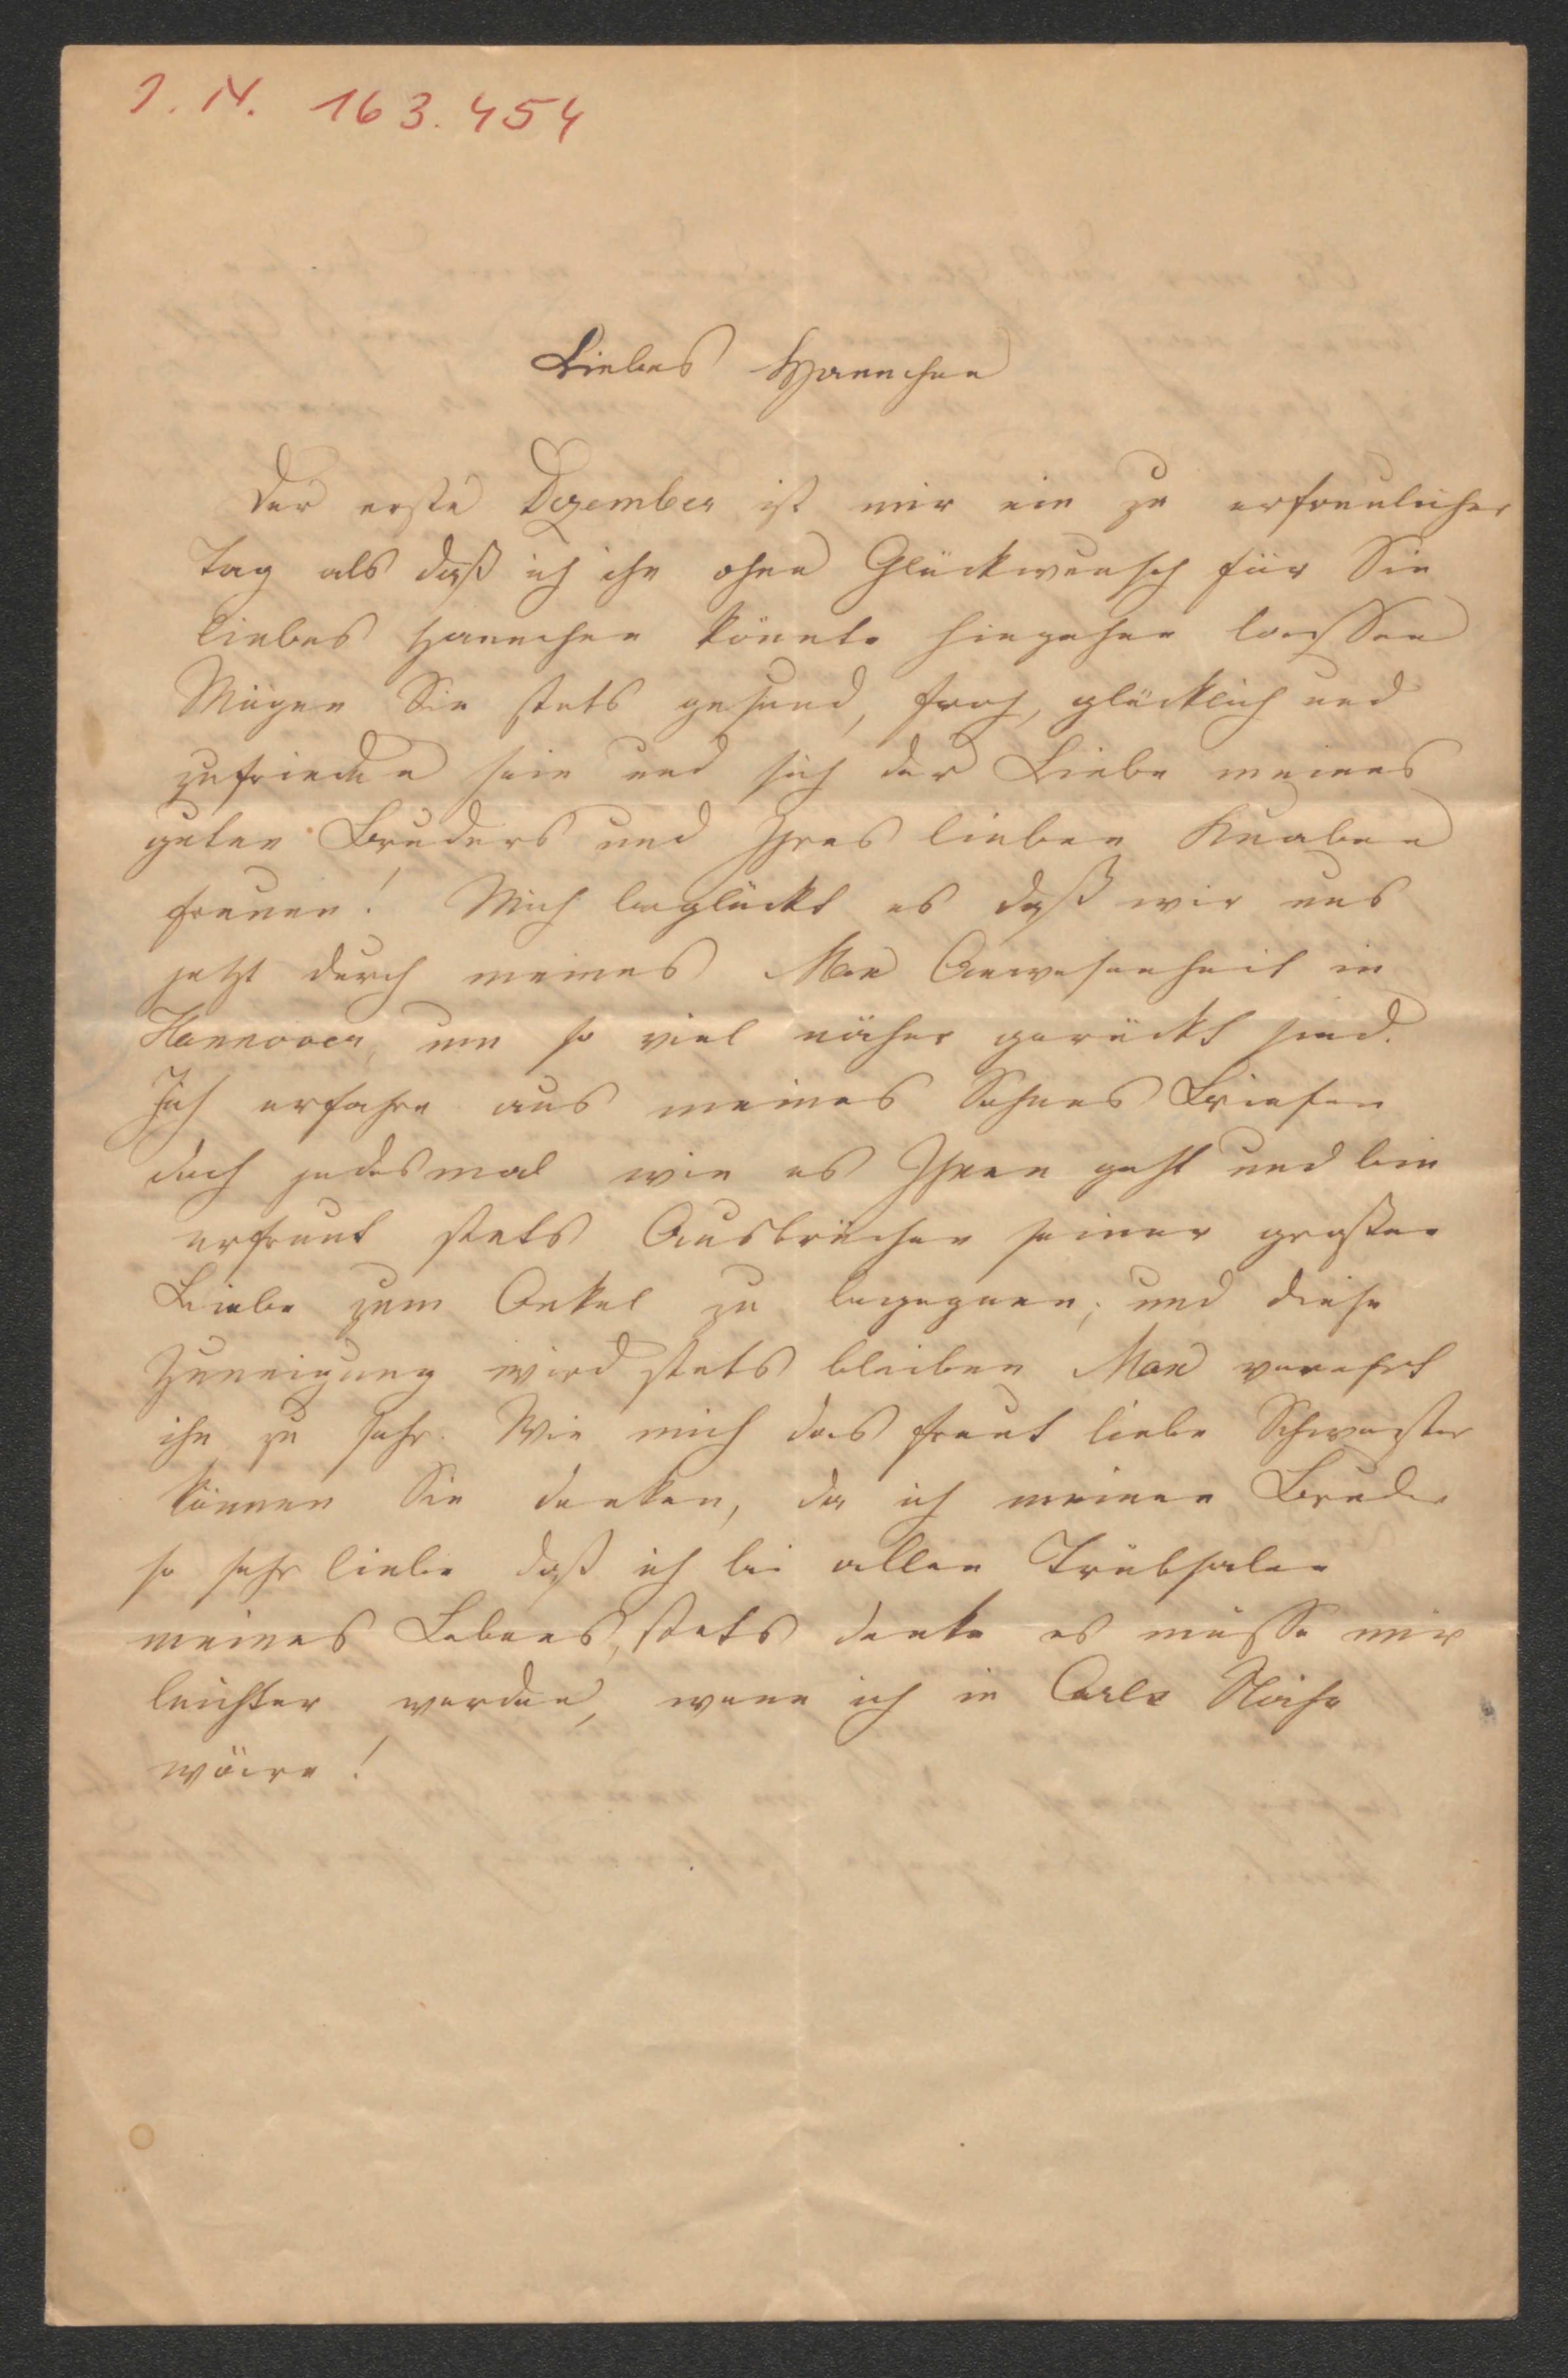 J. N. 163.454
Liebes Hannchen
Der erste Dezember ist mir ein zu erfreulicher
Tag als daß ich ihn ohne Glückwunsch für Sie
liebes Hannchen könnte hingehen lassen
Mögen Sie stets gesund, froh, glücklich und
zufrieden sein und sich der Liebe meines
guten Bruders und Ihres lieben Knaben
freuen! Mich beglückt es daß wir uns
jetzt durch meines Max Anwesenheit in
Hannover um so viel näher gerückt sind.
Ich erfahre aus meines Sohnes Briefen
doch jedesmal wie es Ihnen geht und bin
erfreut stets Ausbrüchen seiner großen
Liebe zum Onkel zu begegnen; und diese
Zuneigung wird stets bleiben Max verehrt
ihn zu sehr. Wie mich das freut liebe Schwester
können Sie denken, da ich meinen Bruder
so sehr liebe daß ich bei allen Trübsalen
meines Lebens, stets denke es müsse mir
leichter werden, wenn ich in Carls Nähe
wäre!